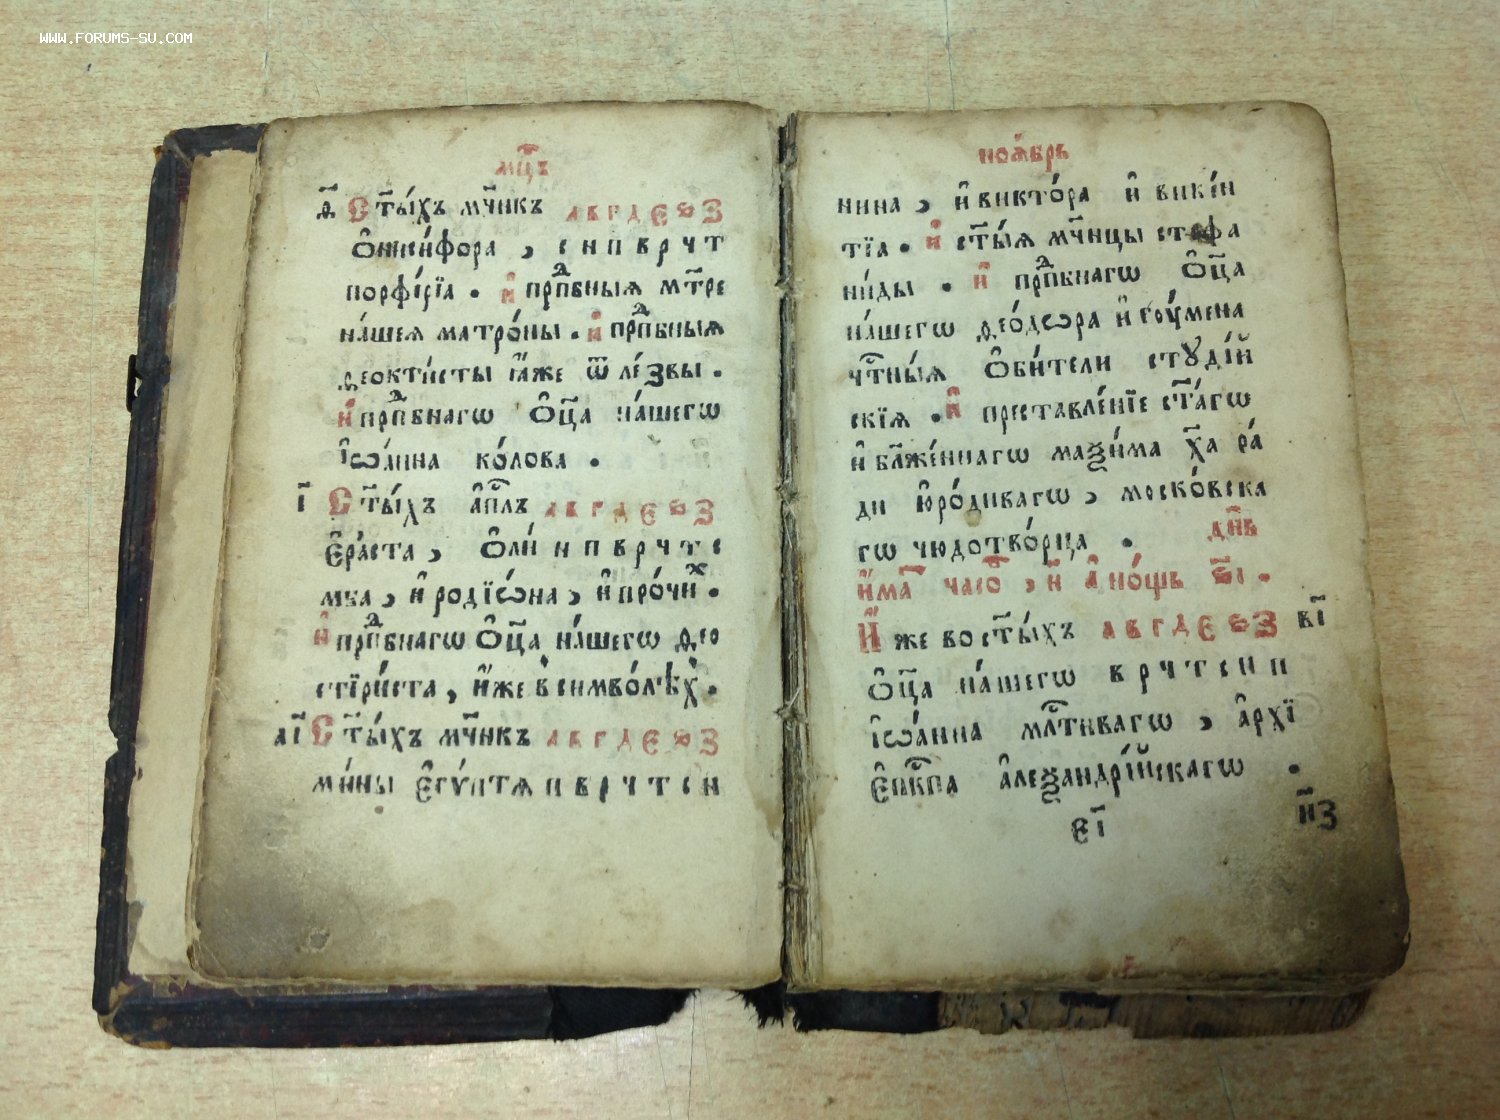 WWW.FORUMS-SU.COM
мц҃ъ
ѳ҃ С҃ты́хъ мч҃нкъ а в г д є ѕ з
Ѻ҆ниси́фора , є и п в р ч т
порфи́рїа . и҆ прпⷣбныѧ мт҃ре
на́шеѧ матро́ны . и҆ прпⷣбныѧ
ѳеокти́сты ꙗ҆́же ѿ ле́звы .
и҆ прпⷣбнагѡ Ѻ҆ц҃а на́шегѡ
і҆ѡа́нна ко́лова .
і҃ С҃ты́хъ а҆пⷭ҇лъ а в г д є ѕ з
Є҆ра́ста , Ѻ҆ли́ н п в р ч т с
мпа , и҆ родїѡ́на , и҆ про́чиⷯ .
и҆ прпⷣбнагѡ Ѻ҆ц҃а на́шегѡ ѳео
сти́рикта , и҆́же в си́мво́лѣхъ .
а҃і С҃ты́хъ мч҃нкъ а в г д є ѕ з
ми́ны Є҆гѵ́птѧ п в р ч т с н
ноѧ́брь
нина , и҆ ви́кто́ра и҆ вике́н
тїа . и҆ ст҃ы́ѧ мч҃нцы стефа
ни́ды . и҆ прпⷣбнагѡ Ѻ҆ц҃а
на́шегѡ ѳео́дѡра и҆гꙋ́мена
чтⷭ҇ны́ѧ Ѻ҆би́тели стꙋді́й
скїѧ . и҆ преставле́нїе ст҃а́гѡ
и҆ бл҃же́ннагѡ маѯи́ма хⷭ҇а ра́
ди ю҆ро́дивагѡ , моско́вска
гѡ чюдотво́рца . дн҃ь
и҆́мать часо́въ , ѳ҃ а҆ но́щь є҃і .
И҆́ же во ст҃ы́хъ а в г д є ѕ з в҃і
Ѻ҆ц҃а на́шегѡ в р ч т с н п
і҆ѡа́нна млⷭ҇тивагѡ , а҆рхї
Є҆пⷭ҇кпа а҆леѯандрі́йскагѡ .
є҃і н҃з